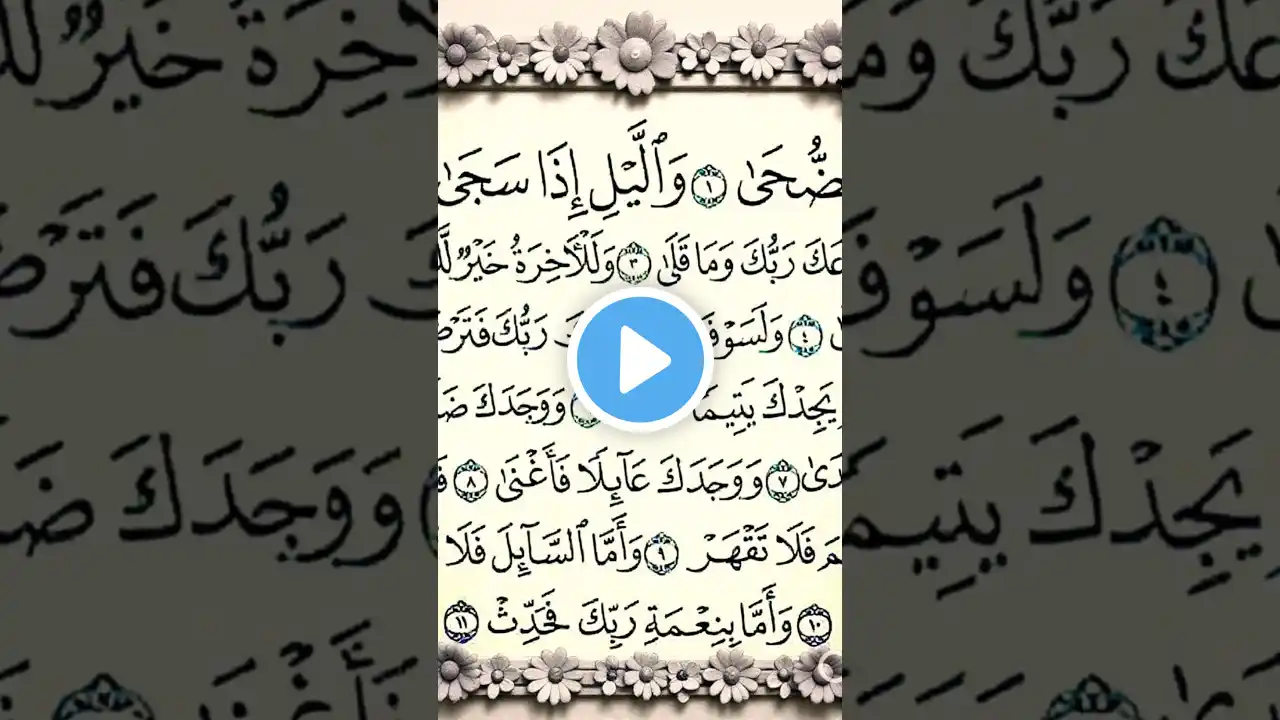 ضُّحَىٰ ١ وَٱلَّيْلِ إِذَا سَجَىٰ
عَكَ رَبُّكَ وَمَا قَلَىٰ ٣ وَلَلْأَخِرَةُ خَيْرٌ لَّ
٤ وَلَسَوْفَ رَبُّكَ فَتَرْضَ
يَجِدْكَ يَتِيمًا وَوَجَدَكَ ضَ
دَىٰ ٧ وَوَجَدَكَ عَآئِلًا فَأَغْنَىٰ ٨ فَ
مَ فَلَا تَقْهَرْ ٩ وَأَمَّا ٱلسَّآئِلَ فَلَا
١٠ وَأَمَّا بِنِعْمَةِ رَبِّكَ فَحَدِّثْ ١١